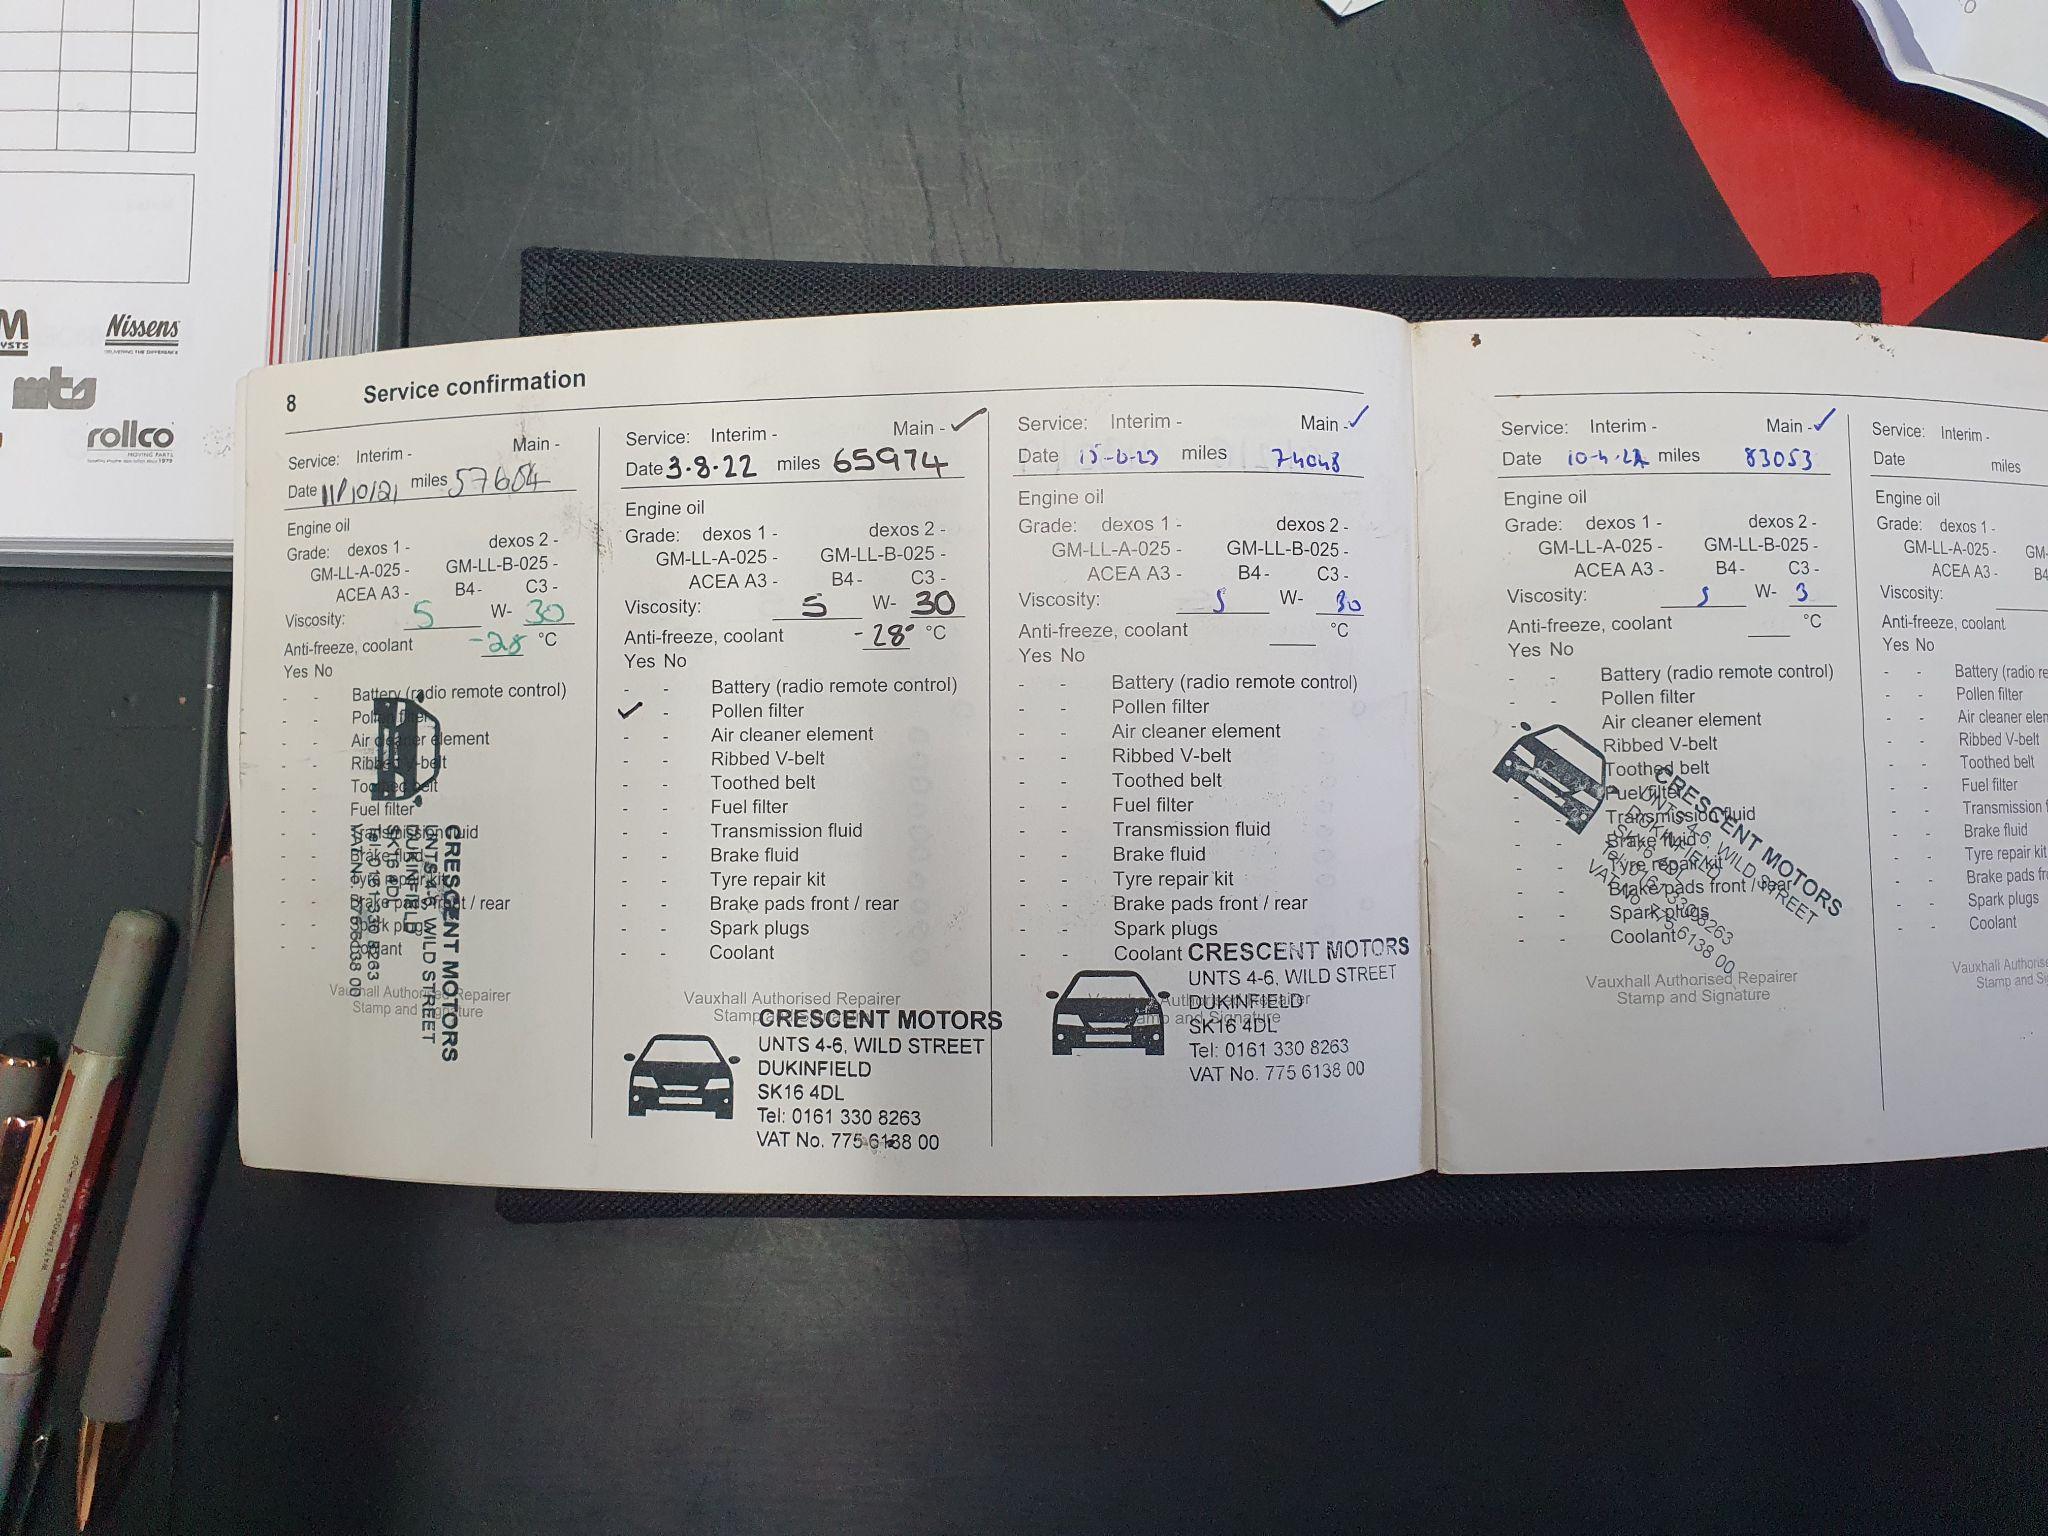 YSTS
Nissens
DELIVERING THE DIFFERENCE
mts
rollco
MOVING PARTS
8 Service confirmation
Service: Interim - Main -
Date 11/10/21 miles
Engine oil
Grade: dexos 1 - dexos 2 -
GM-LL-A-025 - GM-LL-B-025 -
ACEA A3 - B4 - C3 -
Viscosity: 5 W- 30
Anti-freeze, coolant -28 °C
Yes No
- - Battery (radio remote control)
- - Pollen filter
- - Air cleaner element
- - Ribbed V-belt
- - Toothed belt
- - Fuel filter
- - Transmission fluid
- - Brake fluid
- - Tyre repair kit
- - Brake pads front / rear
- - Spark plugs
- - Coolant
Vauxhall Authorised Repairer
Stamp and Signature
CRESCENT MOTORS
UNTS 4-6, WILD STREET
DUKINFIELD
SK16 4DL
Tel: 0161 330 8263
VAT No. 775 6138 00
Service: Interim - Main - ✓
Date 3.8.22 miles 65974
Engine oil
Grade: dexos 1 - dexos 2 -
GM-LL-A-025 - GM-LL-B-025 -
ACEA A3 - B4 - C3 -
Viscosity: 5 W- 30
Anti-freeze, coolant -28° °C
Yes No
- - Battery (radio remote control)
✓ - Pollen filter
- - Air cleaner element
- - Ribbed V-belt
- - Toothed belt
- - Fuel filter
- - Transmission fluid
- - Brake fluid
- - Tyre repair kit
- - Brake pads front / rear
- - Spark plugs
- - Coolant
Vauxhall Authorised Repairer
Stamp and Signature
CRESCENT MOTORS
UNTS 4-6, WILD STREET
DUKINFIELD
SK16 4DL
Tel: 0161 330 8263
VAT No. 775 6138 00
Service: Interim - Main - ✓
Date 15-6-23 miles 74043
Engine oil
Grade: dexos 1 - dexos 2 -
GM-LL-A-025 - GM-LL-B-025 -
ACEA A3 - B4 - C3 -
Viscosity: 5 W- 30
Anti-freeze, coolant °C
Yes No
- - Battery (radio remote control)
- - Pollen filter
- - Air cleaner element
- - Ribbed V-belt
- - Toothed belt
- - Fuel filter
- - Transmission fluid
- - Brake fluid
- - Tyre repair kit
- - Brake pads front / rear
- - Spark plugs
- - Coolant
Vauxhall Authorised Repairer
Stamp and Signature
CRESCENT MOTORS
UNTS 4-6, WILD STREET
DUKINFIELD
SK16 4DL
Tel: 0161 330 8263
VAT No. 775 6138 00
Service: Interim - Main - ✓
Date 10-4-24 miles 83053
Engine oil
Grade: dexos 1 - dexos 2 -
GM-LL-A-025 - GM-LL-B-025 -
ACEA A3 - B4 - C3 -
Viscosity: 5 W- 3
Anti-freeze, coolant °C
Yes No
- - Battery (radio remote control)
- - Pollen filter
- - Air cleaner element
- - Ribbed V-belt
- - Toothed belt
- - Fuel filter
- - Transmission fluid
- - Brake fluid
- - Tyre repair kit
- - Brake pads front / rear
- - Spark plugs
- - Coolant
Vauxhall Authorised Repairer
Stamp and Signature
CRESCENT MOTORS
UNTS 4-6, WILD STREET
DUKINFIELD
SK16 4DL
Tel: 0161 330 8263
VAT No. 775 6138 00
Service: Interim -
Date miles
Engine oil
Grade: dexos 1 -
GM-LL-A-025 - GM-
ACEA A3 - B4
Viscosity:
Anti-freeze, coolant
Yes No
- - Battery (radio re
- - Pollen filter
- - Air cleaner elem
- - Ribbed V-belt
- - Toothed belt
- - Fuel filter
- - Transmission f
- - Brake fluid
- - Tyre repair kit
- - Brake pads fro
- - Spark plugs
- - Coolant
Vauxhall Authorise
Stamp and Si